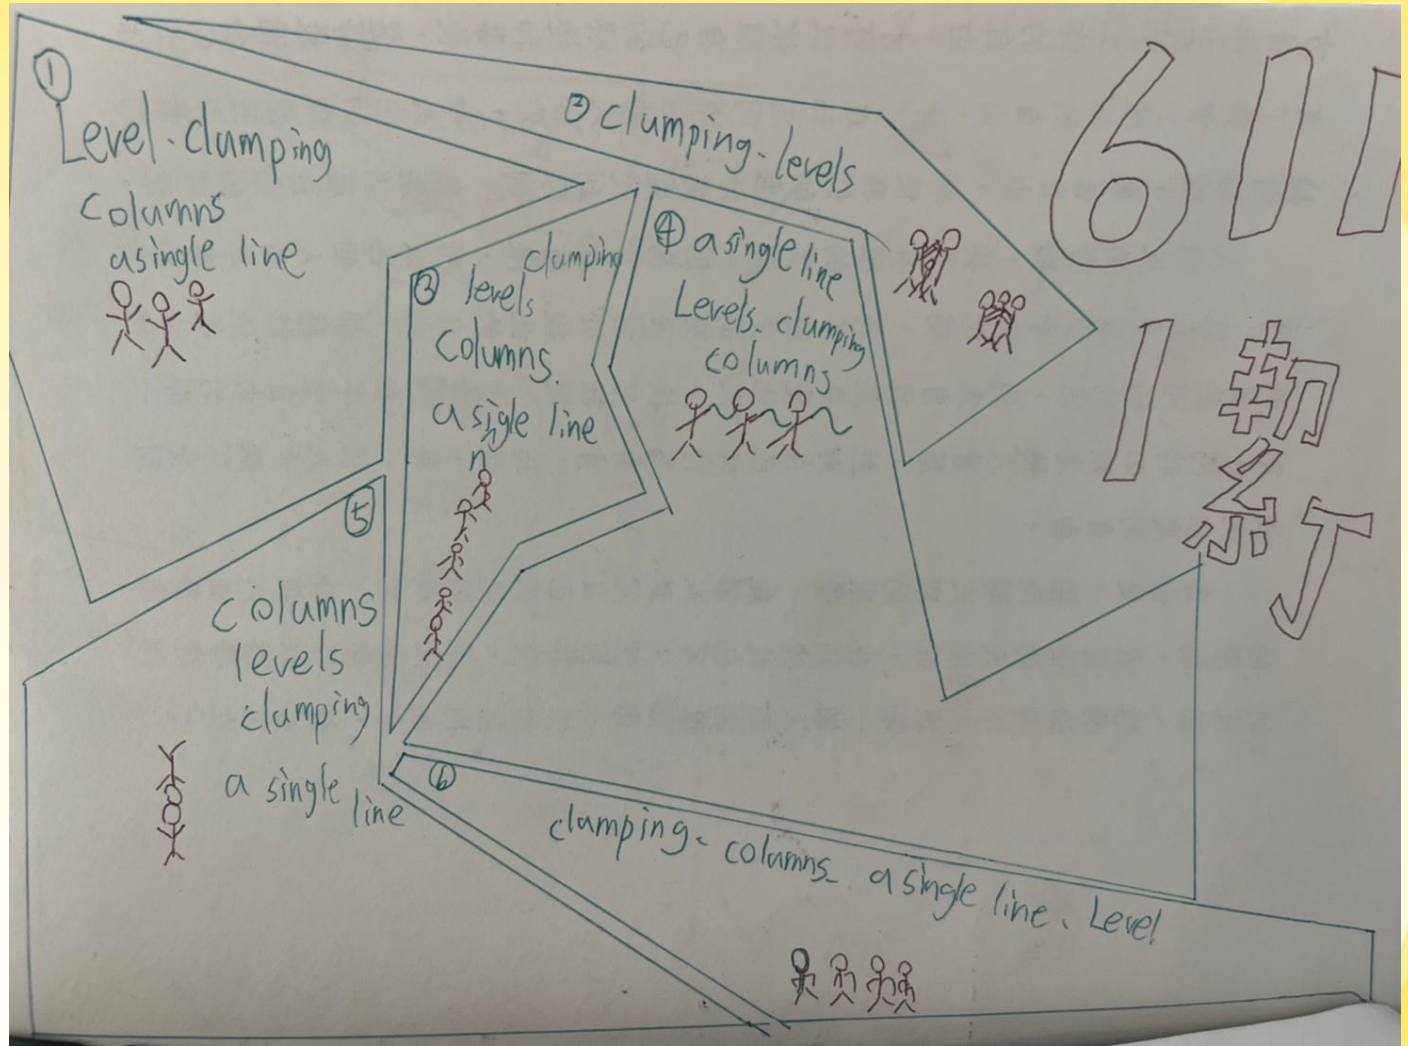 ①
Level. clumping
columns
a single line
② clumping. levels
③ clumping
levels
columns
a single line
n
④ a single line
Levels. clumping
columns
⑤
columns
levels
clumping
a single line
⑥
clumping. columns. a single line. Level
611